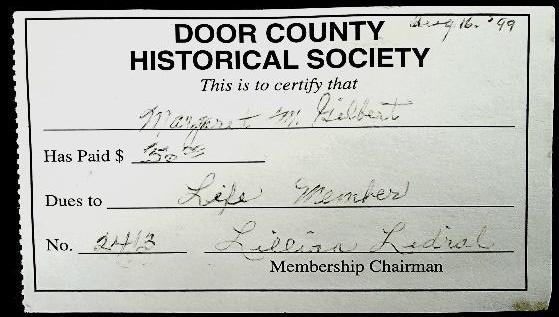 Aug 16. '99
DOOR COUNTY
HISTORICAL SOCIETY
This is to certify that
Margaret M Gilbert
Has Paid $ 50.00
Dues to Life Member
No. 2413 Lillian
Membership Chairman